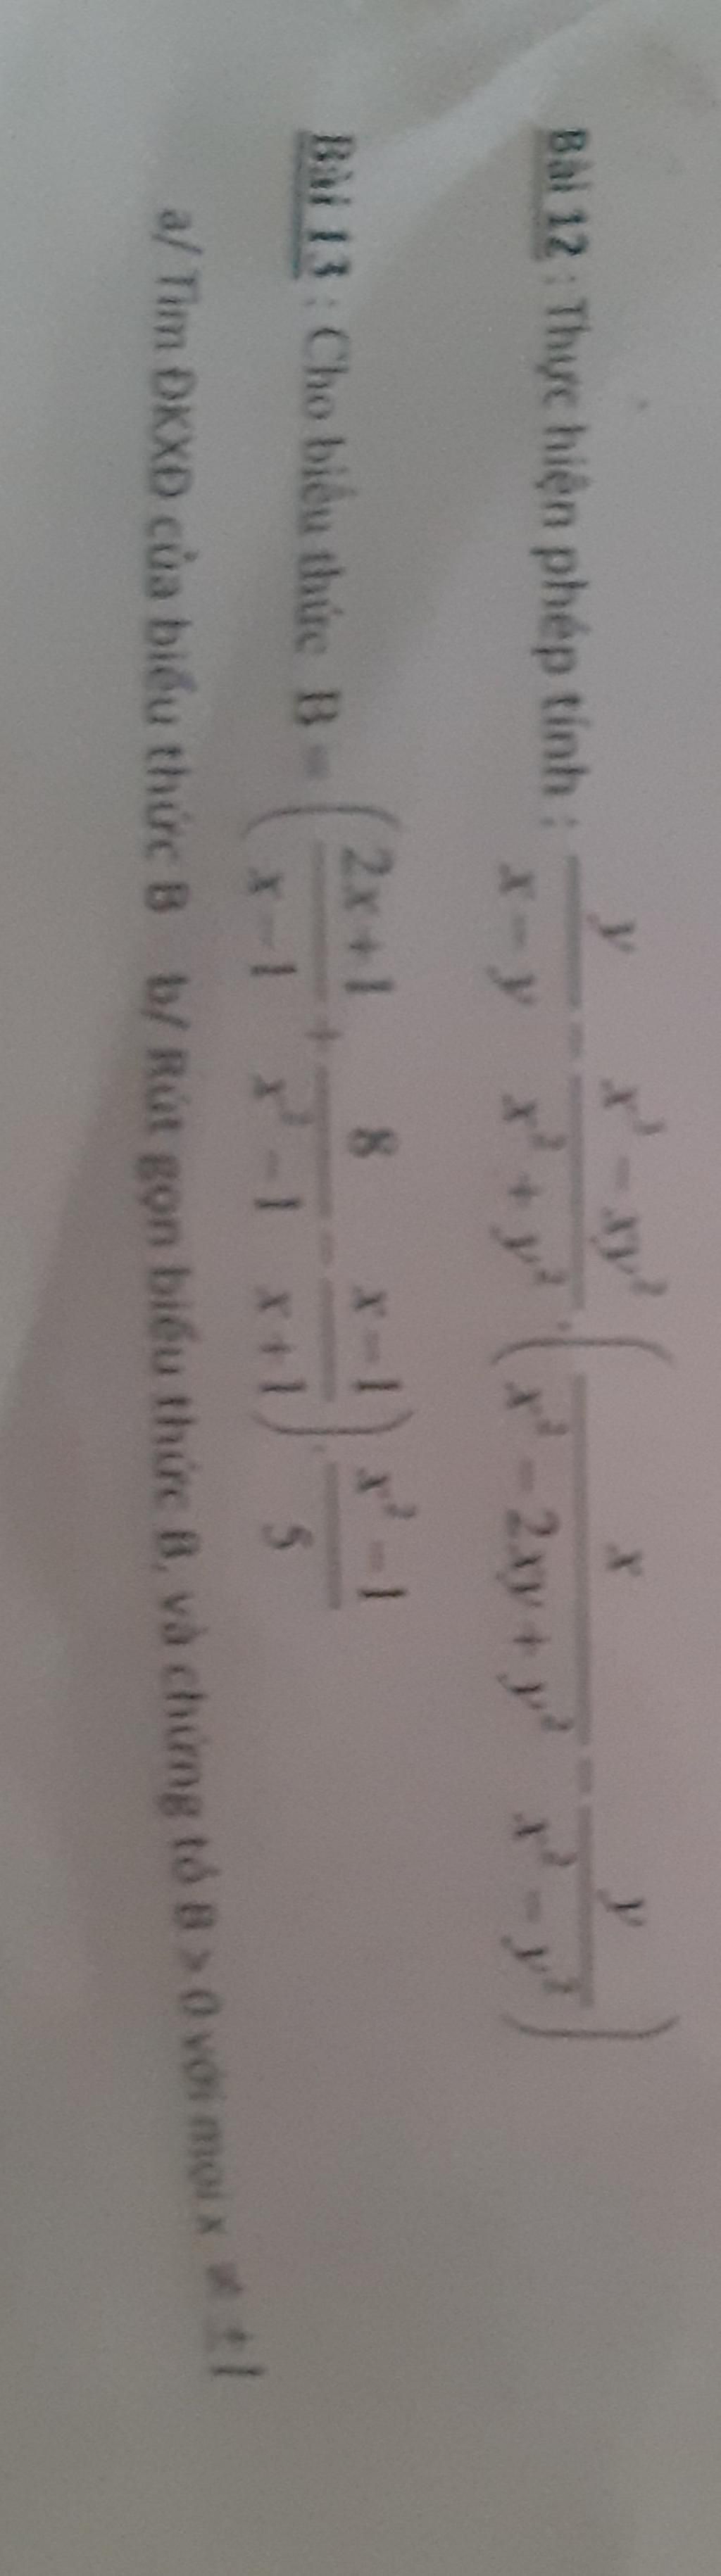 Bài 12 : Thực hiện phép tính : \frac{y}{x-y} - \frac{x^3-xy^2}{x^2+y^2} \cdot \left( \frac{x}{x^2-2xy+y^2} - \frac{y}{x^2-y^2} \right)
Bài 13 : Cho biểu thức B = \left( \frac{2x+1}{x-1} + \frac{8}{x^2-1} - \frac{x-1}{x+1} \right) \cdot \frac{x^2-1}{5}
a/ Tìm ĐKXĐ của biểu thức B b/ Rút gọn biểu thức B, và chứng tỏ B > 0 với mọi x ≠ ±1